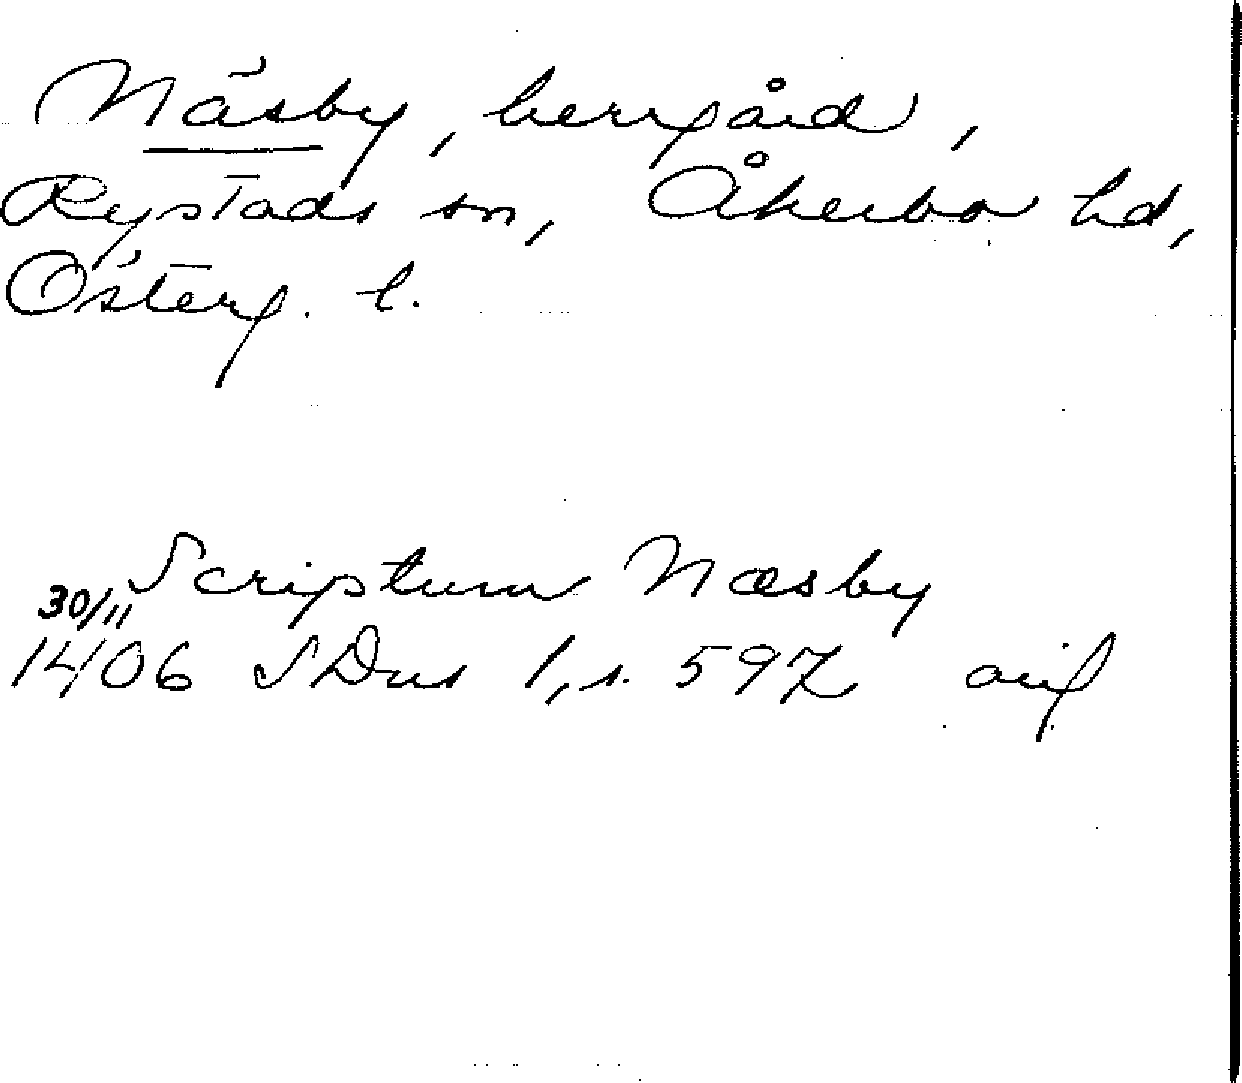 Näsby, herrgård,
Rystads sn, Åkerbo hd,
Österg. l.
Scriptum Næsby
30/11
1406 SDns 1, s. 597 avif